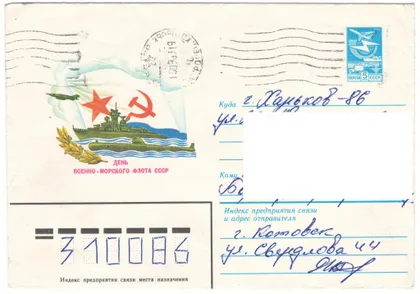 ПОЧТА СССР
Куда г. Харьков-86
ул.
ДЕНЬ
ВОЕННО-МОРСКОГО ФЛОТА СССР
Кому
Индекс предприятия связи
и адрес отправителя
г. Котовск
ул. Свердлова 44
310086
Индекс предприятия связи места назначения